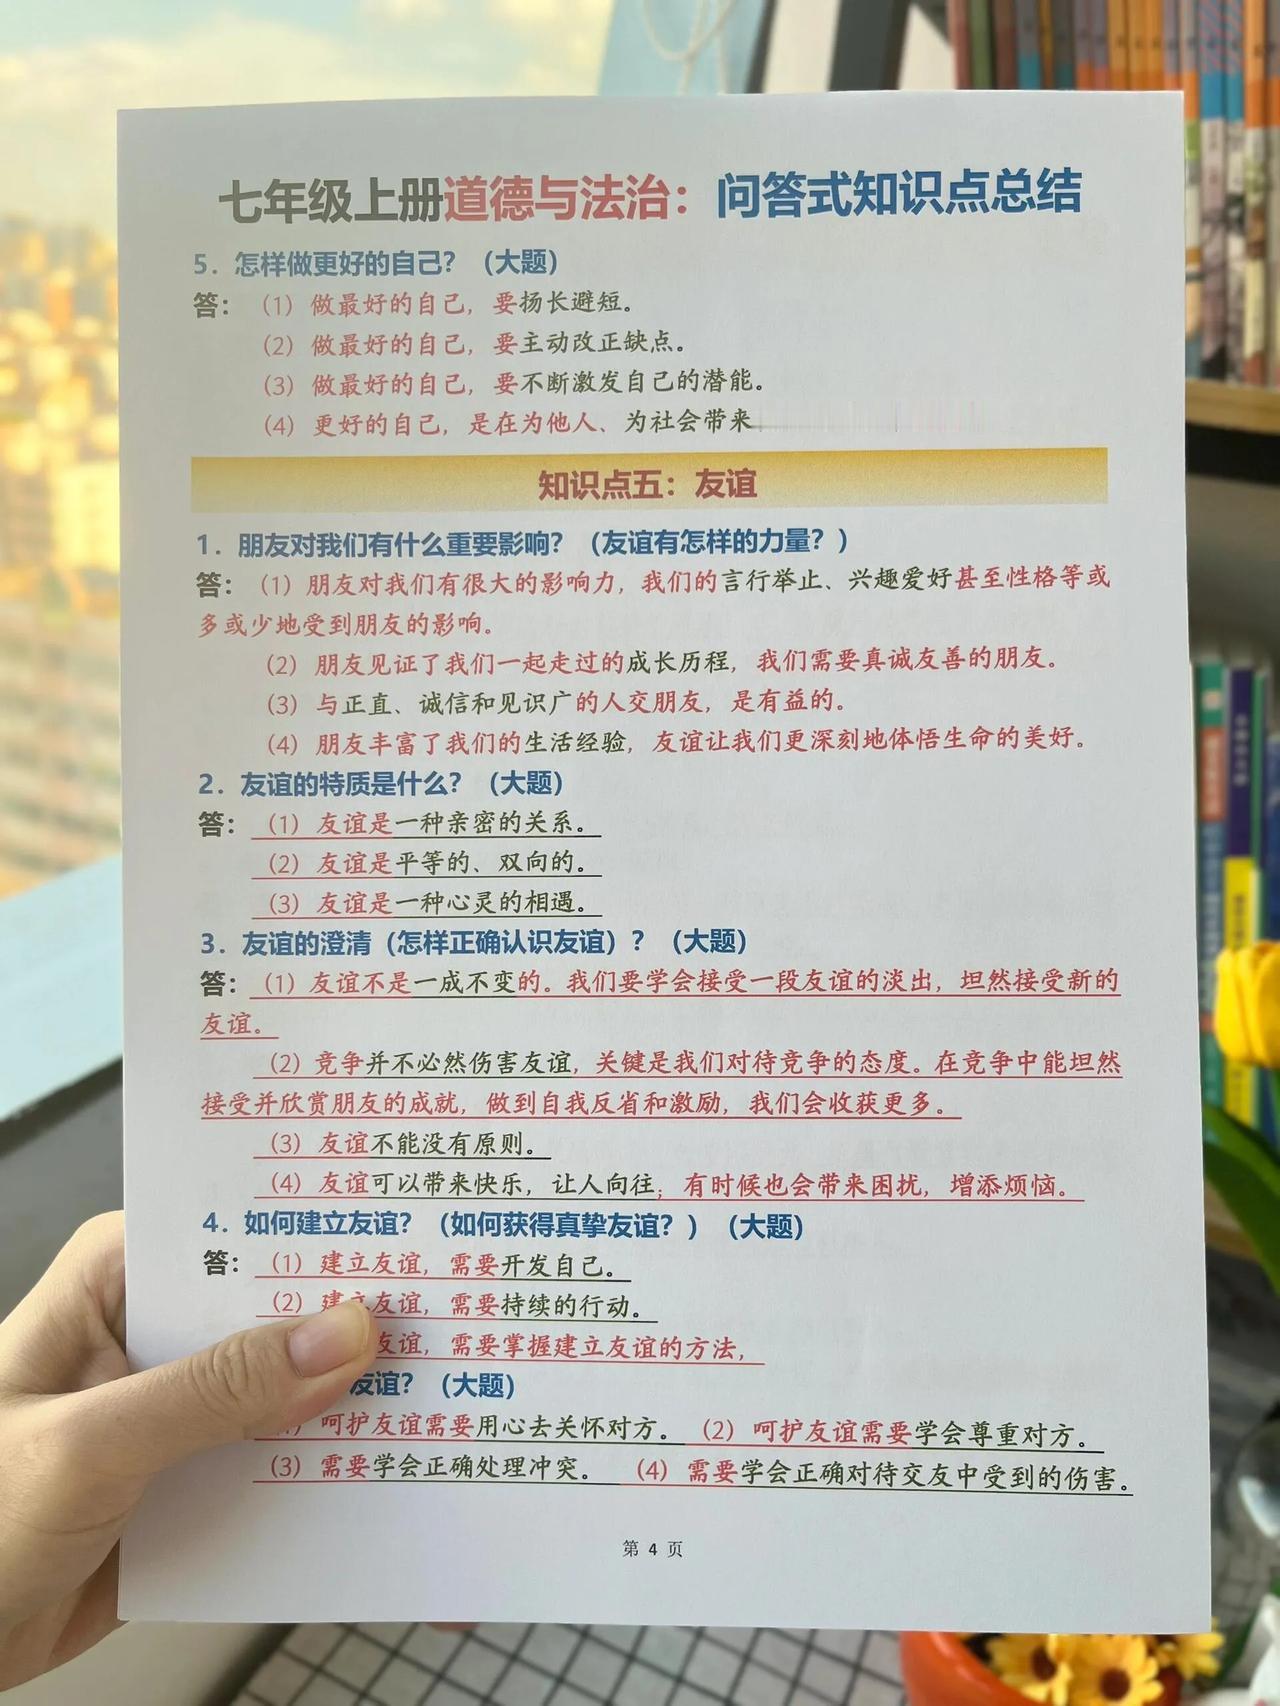 七年级上册道德与法治：问答式知识点总结
5．怎样做更好的自己？（大题）
答：（1）做最好的自己，要扬长避短。
（2）做最好的自己，要主动改正缺点。
（3）做最好的自己，要不断激发自己的潜能。
（4）更好的自己，是在为他人、为社会带来
知识点五：友谊
1．朋友对我们有什么重要影响？（友谊有怎样的力量？）
答：（1）朋友对我们有很大的影响力，我们的言行举止、兴趣爱好甚至性格等或
多或少地受到朋友的影响。
（2）朋友见证了我们一起走过的成长历程，我们需要真诚友善的朋友。
（3）与正直、诚信和见识广的人交朋友，是有益的。
（4）朋友丰富了我们的生活经验，友谊让我们更深刻地体悟生命的美好。
2．友谊的特质是什么？（大题）
答：（1）友谊是一种亲密的关系。
（2）友谊是平等的、双向的。
（3）友谊是一种心灵的相遇。
3．友谊的澄清（怎样正确认识友谊）？（大题）
答：（1）友谊不是一成不变的。我们要学会接受一段友谊的淡出，坦然接受新的
友谊。
（2）竞争并不必然伤害友谊，关键是我们对待竞争的态度。在竞争中能坦然
接受并欣赏朋友的成就，做到自我反省和激励，我们会收获更多。
（3）友谊不能没有原则。
（4）友谊可以带来快乐，让人向往；有时候也会带来困扰，增添烦恼。
4．如何建立友谊？（如何获得真挚友谊？）（大题）
答：（1）建立友谊，需要开发自己。
（2）建立友谊，需要持续的行动。
友谊，需要掌握建立友谊的方法，
友谊？（大题）
呵护友谊需要用心去关怀对方。（2）呵护友谊需要学会尊重对方。
（3）需要学会正确处理冲突。（4）需要学会正确对待交友中受到的伤害。
第 4 页